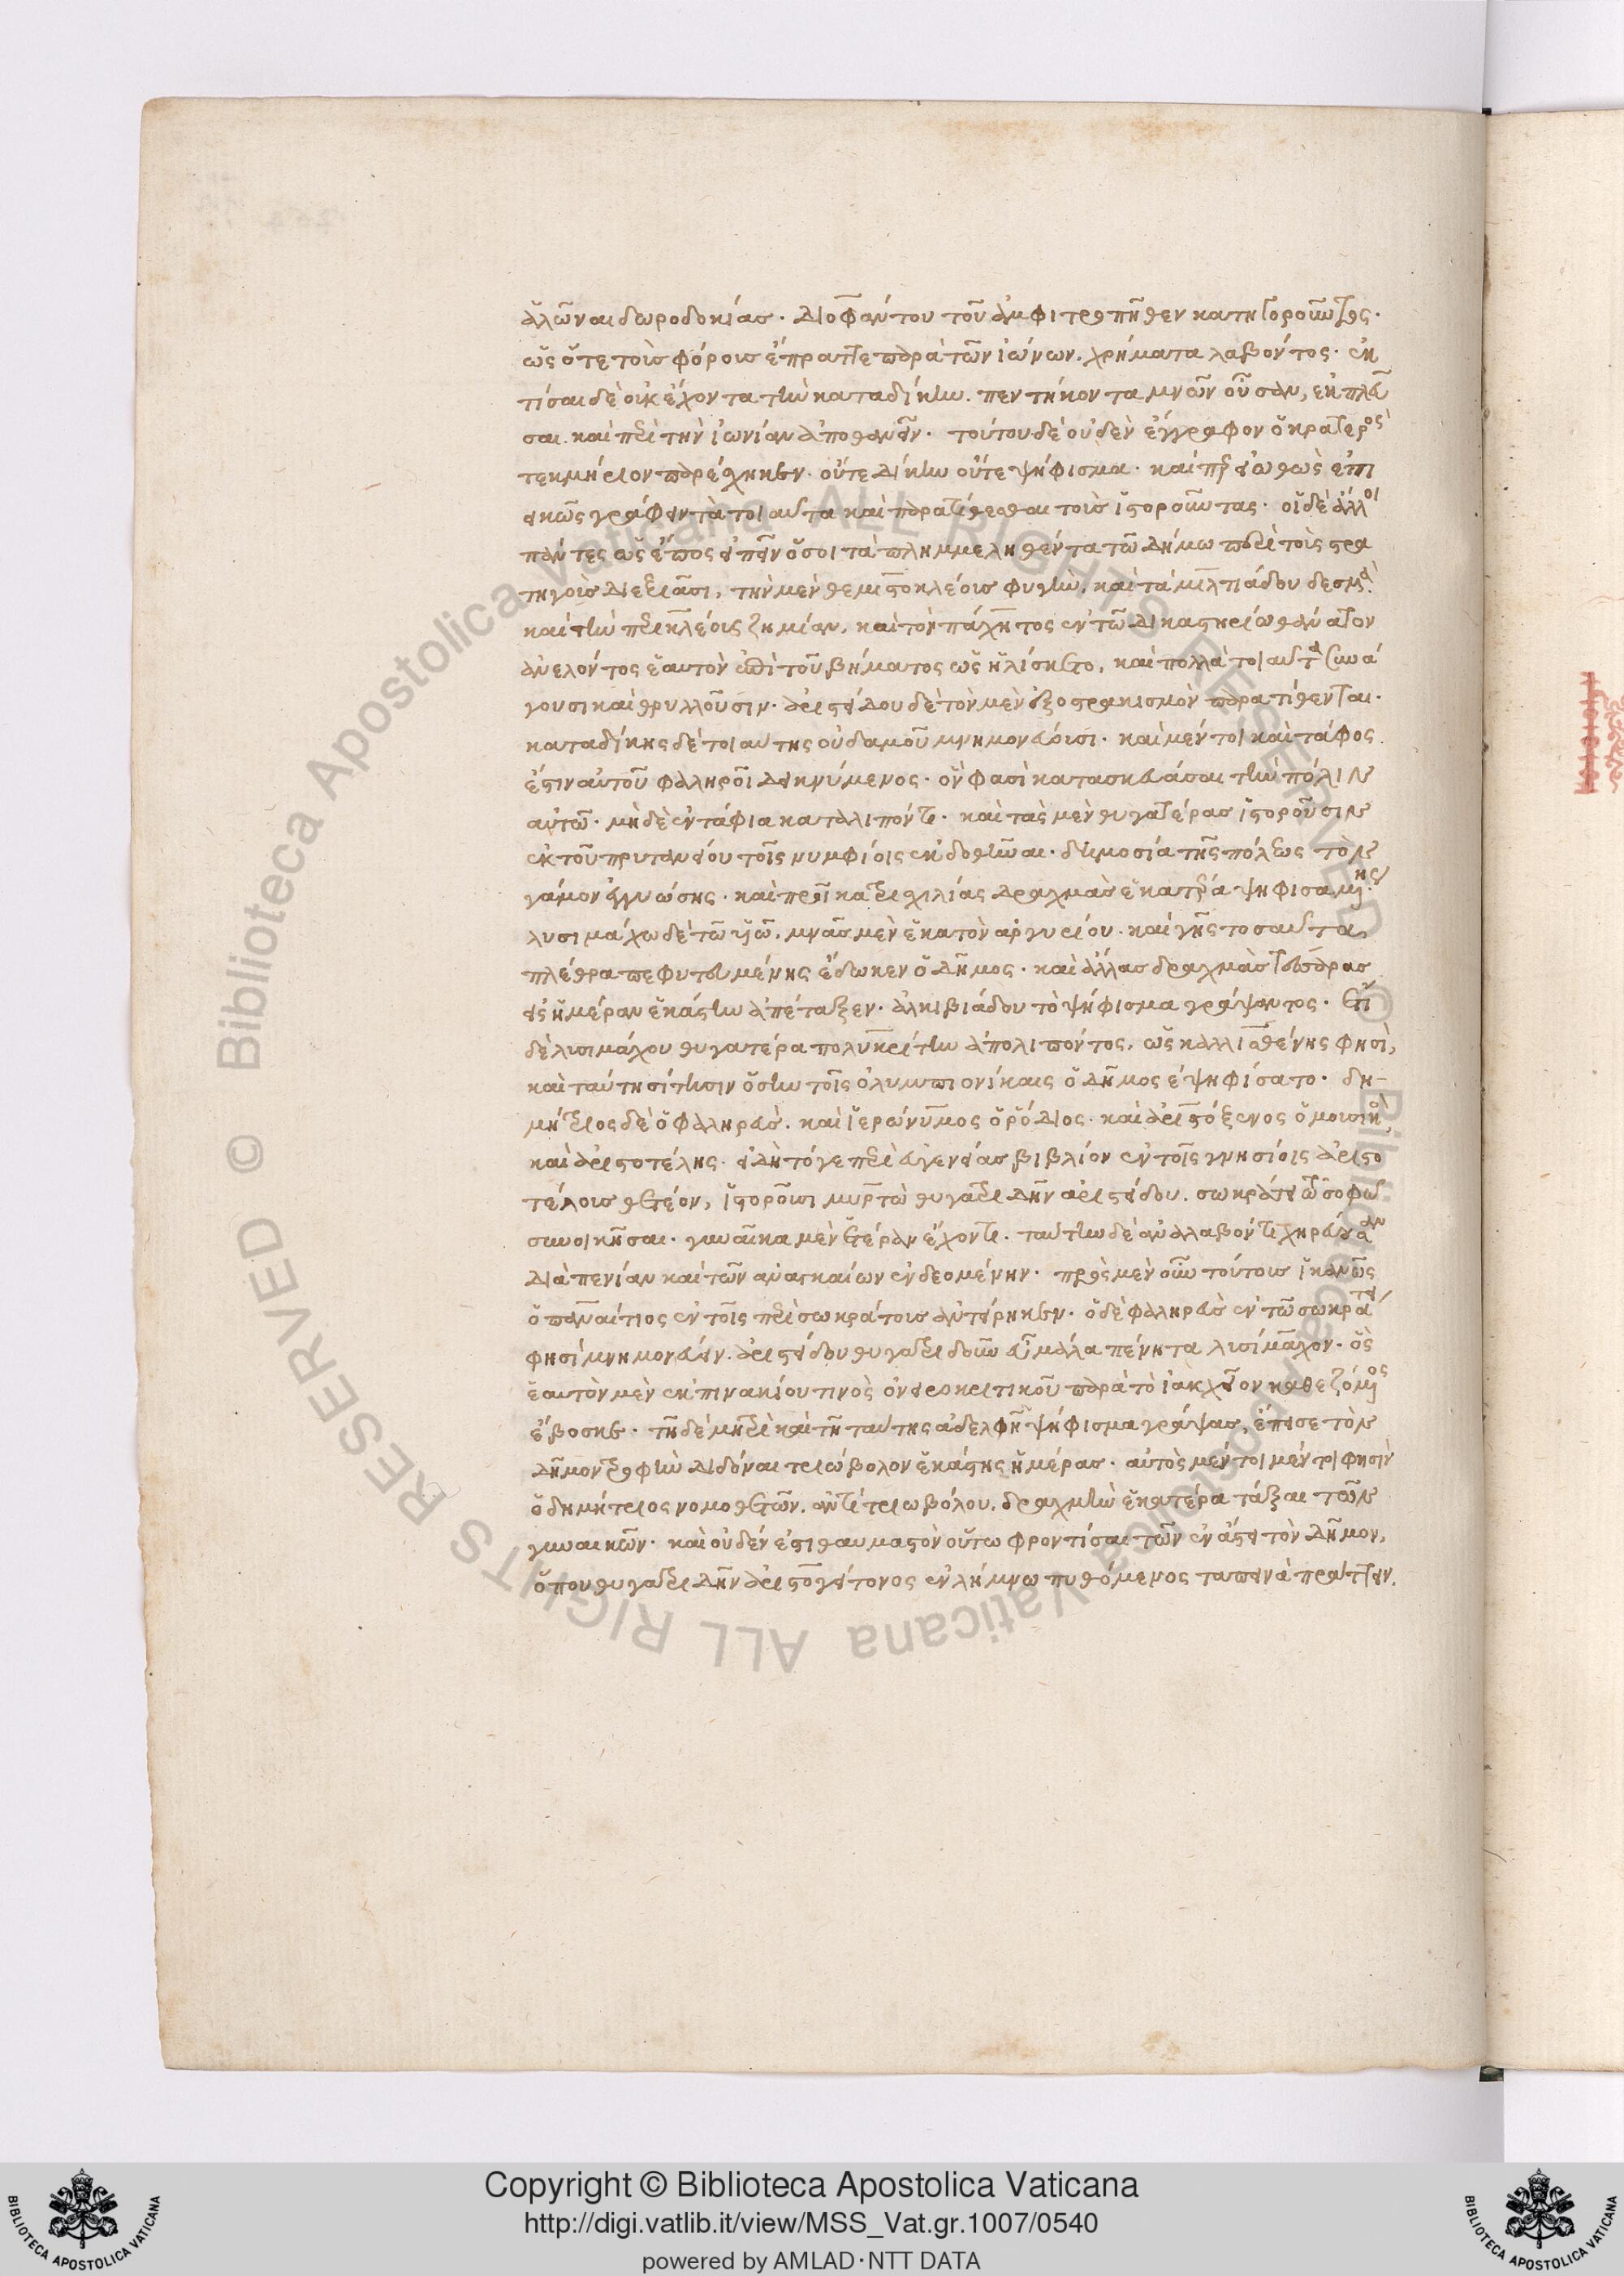 ἁλῶναι δωροδοκίας. Διοφάντου τοῦ ἀμφιτροπῆθεν κατηγοροῦντος.
ὡς ὅτε τοῖς φόροις ἔπραττε παρὰ τῶν ἰώνων. χρήματα λαβόντος. ἐκ
τίσαι δὲ οὐκ ἔχοντα τὴν καταδίκην. πεντήκοντα μνῶν οὖσαν, ἐκπλεῦ
σαι. καὶ περὶ τὴν ἰωνίαν ἀποθανεῖν. τούτου δὲ οὐδὲν ἔγγραφον ὁ κρατερὸς
τεκμήριον παρέσχηκεν. οὔτε δίκην οὔτε ψήφισμα. καίπερ εἰωθὼς ἐπι
εικῶς γράφειν τὰ τοιαῦτα καὶ παρατίθεσθαι τοὺς ἱστοροῦντας. οἱ δὲ ἄλλοι
πάντες ὡς ἔπος εἰπεῖν ὅσοι τὰ πλημμεληθέντα τῶ δήμω περὶ τοὺς στρα
τηγοὺς διεξίασι, τὴν μὲν θεμιστοκλέους φυγὴν. καὶ τὰ μιλτιάδου δεσμὰ.
καὶ τὴν περικλέους ζημίαν. καὶ τὸν πάχητος ἐν τῶ δικαστηρίω θάνατον
ἀνελόντος ἑαυτὸν ἐπὶ τοῦ βήματος ὡς ἡλίσκετο, καὶ πολλὰ τοιαῦτα συνά
γουσι καὶ θρυλλοῦσιν. ἀριστείδου δὲ τὸν μὲν ἐξοστρακισμὸν παρατίθενται.
καταδίκης δὲ τοιαύτης οὐδαμοῦ μνημονεύουσι. καὶ μέντοι καὶ τάφος
ἐστὶν αὐτοῦ φαληροῖ δεικνύμενος. ὃν φασὶ κατασκευάσαι τὴν πόλιν
αὐτῶ. μηδὲ ἐντάφια καταλιπόντι. καὶ τὰς μὲν θυγατέρας ἱστοροῦσιν
ἐκ τοῦ πρυτανείου τοῖς νυμφίοις ἐκδοθῆναι. δημοσία τῆς πόλεως τὸν
γάμον ἐγγυώσης. καὶ προῖκα τρισχιλίας δραχμὰς ἑκατέρα ψηφισαμένης.
λυσιμάχω δὲ τῶ υἱῶ. μνᾶς μὲν ἑκατὸν ἀργυρίου. καὶ γῆς τοσαῦτα
πλέθρα πεφυτευμένης ἔδωκεν ὁ δῆμος. καὶ ἄλλας δραχμὰς τέσσαρας
εἰς ἡμέραν ἑκάστην ἀπέταξεν. ἀλκιβιάδου τὸ ψήφισμα γράψαντος. ἔτι
δὲ λυσιμάχου θυγατέρα πολυκρίτην ἀπολιπόντος. ὡς καλλισθένης φησὶ,
καὶ ταύτη σίτησιν ὅσην τοῖς ὀλυμπιονίκαις ὁ δῆμος ἐψηφίσατο. δη-
μήτριος δὲ ὁ φαληρεὺς. καὶ ἱερώνυμος ὁ ῥόδιος. καὶ ἀριστόξενος ὁ μουσικὸς
καὶ ἀριστοτέλης. εἰ δὴ τό γε περὶ εὐγενείας βιβλίον ἐν τοῖς γνησίοις ἀριστο
τέλους θετέον, ἱστοροῦσι μυρτὼ θυγατριδῆν ἀριστείδου. σωκράτει τῶ σοφῶ
συνοικῆσαι. γυναῖκα μὲν ἑτέραν ἔχοντι. ταύτην δὲ ἀναλαβόντι χηρεύουσαν
διὰ πενίαν καὶ τῶν ἀναγκαίων ἐνδεομένην. πρὸς μὲν οὖν τούτους ἱκανῶς
ὁ παναίτιος ἐν τοῖς περὶ σωκράτους ἀντείρηκεν. ὁ δὲ φαληρεὺς ἐν τῶ σωκράτει
φησὶ μνημονεύειν. ἀριστείδου θυγατριδοῦν εὖ μάλα πένητα λυσίμαχον. ὃς
ἑαυτὸν μὲν ἐκ πινακίου τινὸς ὀνειροκριτικοῦ παρὰ τὸ ἰακχεῖον καθεζόμενος
ἔβοσκε. τῆ δὲ μητρὶ καὶ τῆ ταύτης ἀδελφῆ ψήφισμα γράψας, ἔπεισε τὸν
δῆμον τροφὴν διδόναι τριώβολον ἑκάστης ἡμέρας. αὐτὸς μέντοι μέντοι φησὶν
ὁ δημήτριος νομοθετῶν. ἀντὶ τριωβόλου. δραχμὴν ἑκατέρα τάξαι τῶν
γυναικῶν. καὶ οὐδέν ἐστι θαυμαστὸν οὕτω φροντίσαι τῶν ἐν ἄστει τὸν δῆμον,
ὅπου θυγατριδῆν ἀριστογείτονος ἐν λήμνω πυθόμενος ταπεινὰ πράττειν.
Copyright © Biblioteca Apostolica Vaticana
http://digi.vatlib.it/view/MSS_Vat.gr.1007/0540
powered by AMLAD·NTT DATA
BIBLIOTECA APOSTOLICA VATICANA
BIBLIOTECA APOSTOLICA VATICANA
© Biblioteca Apostolica Vaticana ALL RIGHTS RESERVED
© Biblioteca Apostolica Vaticana ALL RIGHTS RESERVED